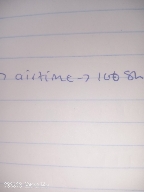 > airtime -> 100 Sh